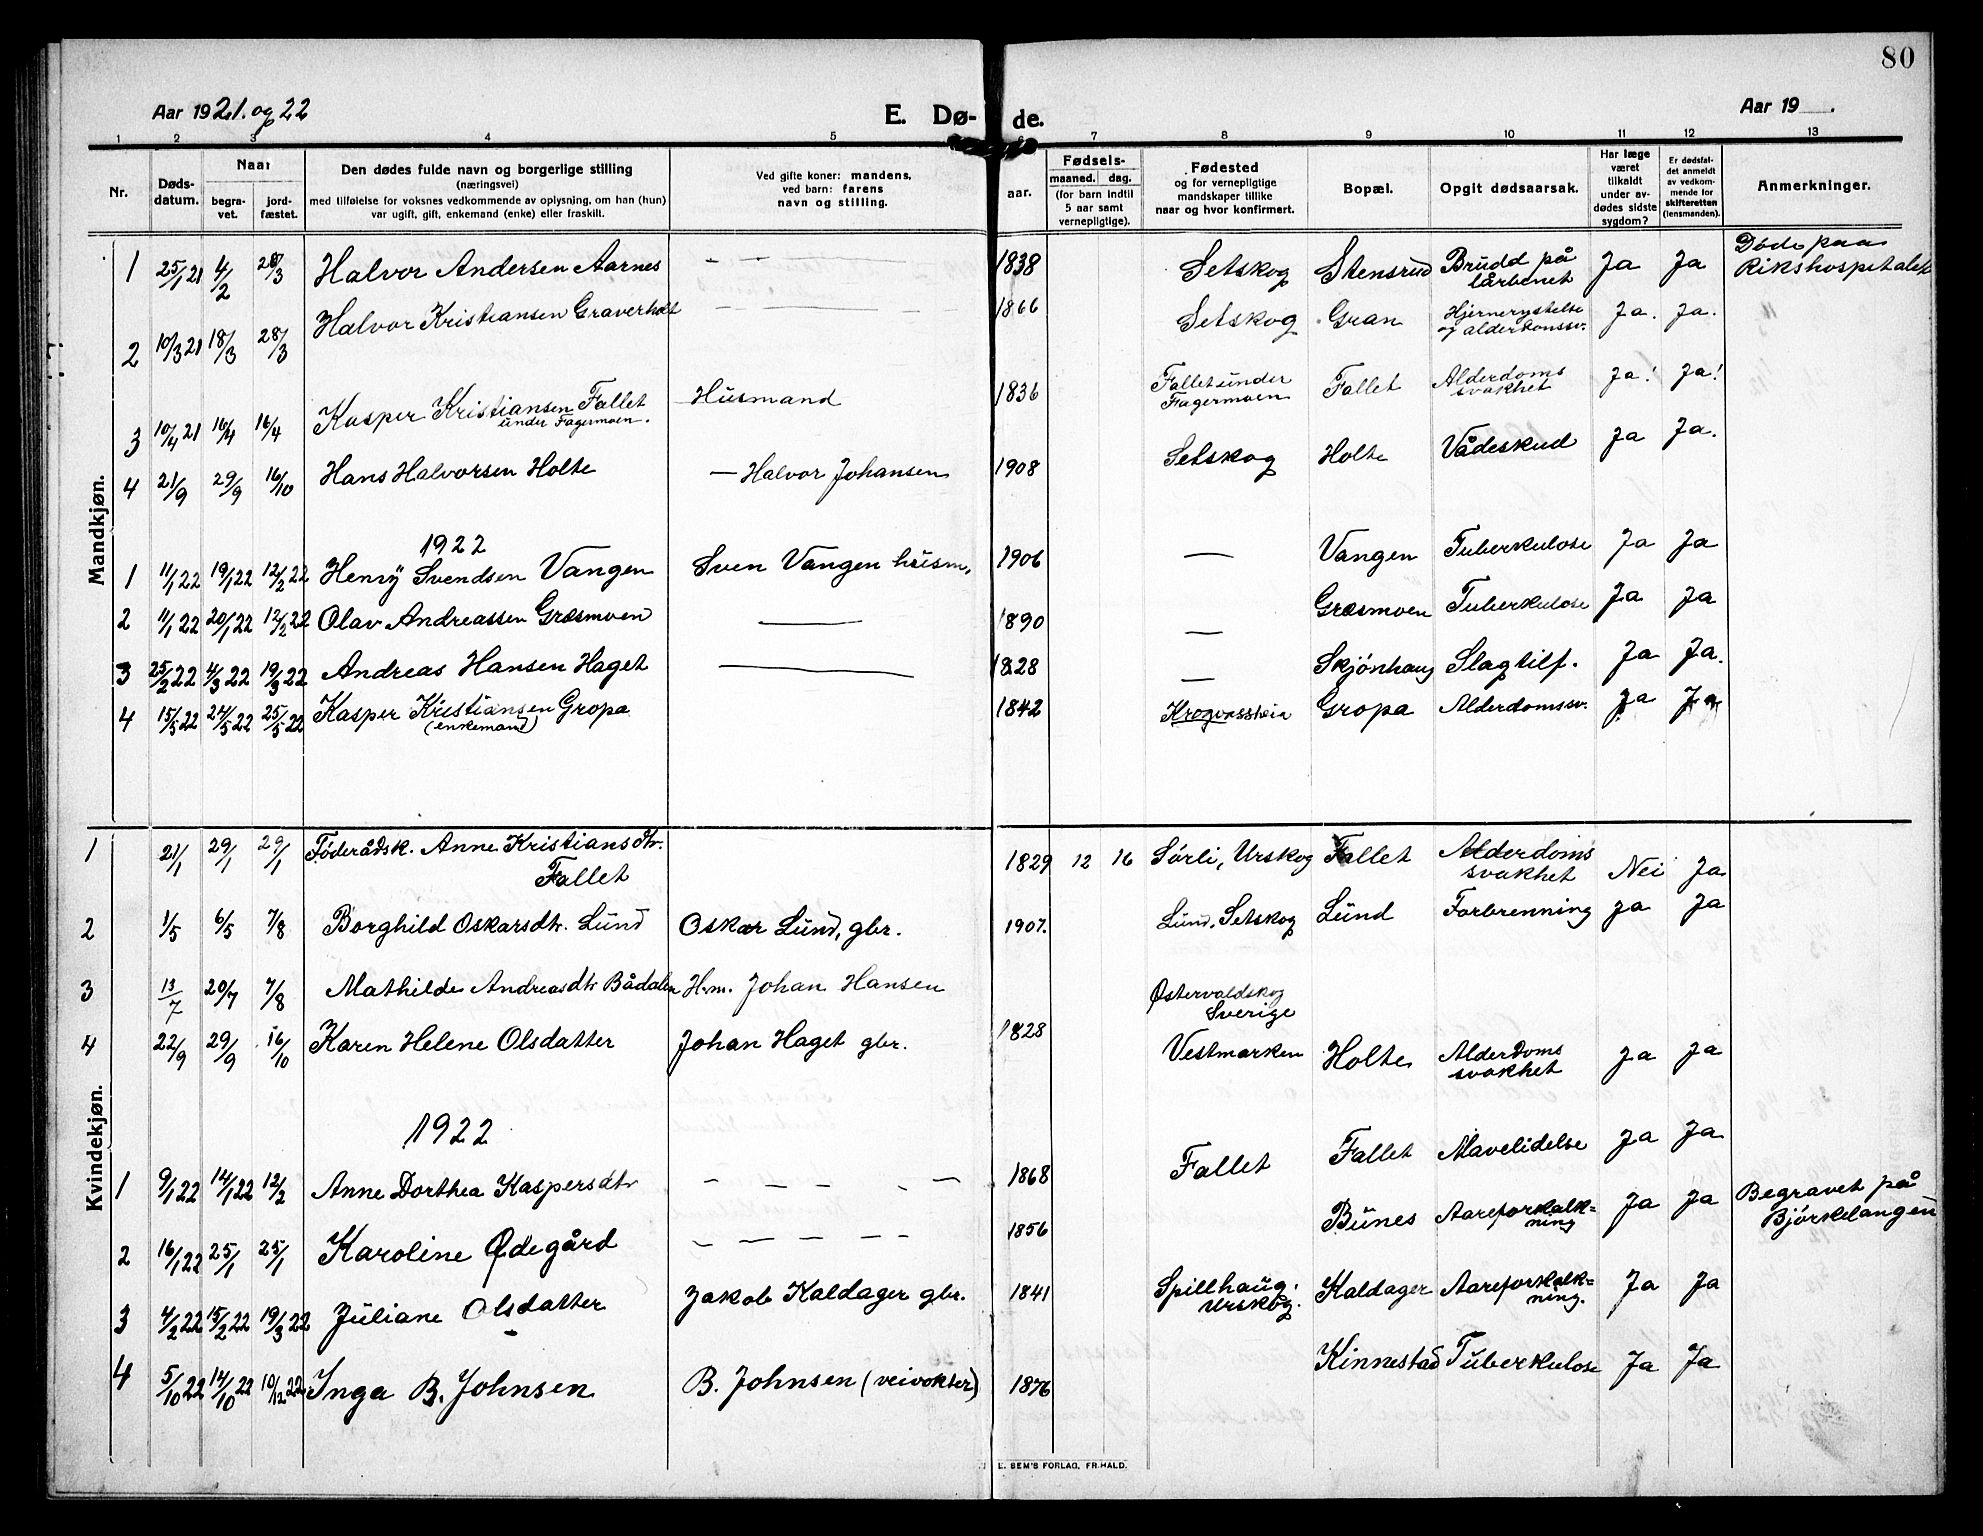 80
Aar 1921. og 22
E. Dø- de.
Aar 19 .
1 2 3 4 5 6 7 8 9 10 11 12 13
Nr.
Døds-
datum.
Naar
begra-
vet.
jord-
fæstet.
Den dødes fulde navn og borgerlige stilling
(næringsvei)
med tilføielse for voksnes vedkommende av oplysning, om han (hun)
var ugift, gift, enkemand (enke) eller fraskilt.
Ved gifte koner: mandens,
ved barn: farens
navn og stilling.
aar.
Fødsels-
maaned. dag.
(for barn indtil
5 aar samt
vernepligtige).
Fødested
og for vernepligtige
mandskaper tillike
naar og hvor konfirmert.
Bopæl.
Opgit dødsaarsak.
Har læge
været
tilkaldt
under av-
dødes sidste
sygdom?
Er dødsfal-
det anmeldt
av vedkom-
mende for
skifteretten
(lensmanden).
Anmerkninger.
Mandkjøn.
1 25/1 21 4/2 28/3 Halvor Andersen Aarnes — 1838 Setskog Stensrud Brudd på lårbenet Ja Ja Døde paa Rikshospitalet
2 10/3 21 18/3 28/3 Halvor Kristiansen Graverholt — 1866 Setskog Gran Hjernerystelse og alderdomssv. Ja. Ja.
3 10/4 21 16/4 16/4 Kasper Kristiansen Fallet under Fagermoen. Husmand 1836 Fallet under Fagermoen Fallet Alderdoms svakhet Ja! Ja!
4 21/9 29/9 16/10 Hans Halvorsen Holte — Halvor Johansen 1908 Setskog Holte Vådeskud Ja Ja.
1922
1 11/1 22 19/1 22 12/2 22 Henry Svendsen Vangen Sven Vangen husm. 1906 — Vangen Tuberkulose Ja Ja
2 11/1 22 20/1 22 12/2 22 Olav Andreassen Græsmoen — 1890 — Græsmoen Tuberkulose Ja Ja
3 25/2 22 4/3 22 19/3 22 Andreas Hansen Haget — 1828 — Skjønhaug Slagtilf. Ja Ja.
4 15/5 22 24/5 22 25/5 22 Kasper Kristiansen Gropa (enkemand) 1842 Krogvassheia Gropa Alderdomssv. Ja Ja
Kvindekjøn.
1 21/1 29/1 29/1 Føderådsk. Anne Kristiansdtr. Fallet 1829 12 16 Sørli, Urskog Fallet Alderdoms svakhet Nei Ja
2 1/5 6/5 7/8 Borghild Oskarsdtr. Lund Oskar Lund, gbr. 1907. Lund, Setskog Lund Forbrenning Ja Ja
3 13/7 20/7 7/8 Mathilde Andreasdtr Bådalen H.m. Johan Hansen Østervaldskog Sverige
4 22/9 29/9 16/10 Karen Helene Olsdatter Johan Haget gbr. 1828 Vestmarken Holte Alderdoms svakhet Ja Ja
1922
1 9/1 22 14/1 22 12/2 Anne Dorthea Kaspersdtr — 1868 Fallet Fallet Mavelidelse Ja Ja
2 16/1 22 25/1 25/1 Karoline Ødegård — 1856 Bunes Aareforkalk= ning Ja Ja Begravet på Bjørkelangen
3 4/2 22 15/2 22 19/3 22 Juliane Olsdatter Jakob Kaldager gbr. 1841 Spillhaug. Urskog. Kaldager Aareforkalk= ning. Ja Ja
4 5/10 22 14/10 22 10/12 22 Inga B. Johnsen B. Johnsen (veivokter) 1876 Kinnestad Tuberkulose Ja Ja
E. SEM'S FORLAG, FR.HALD.